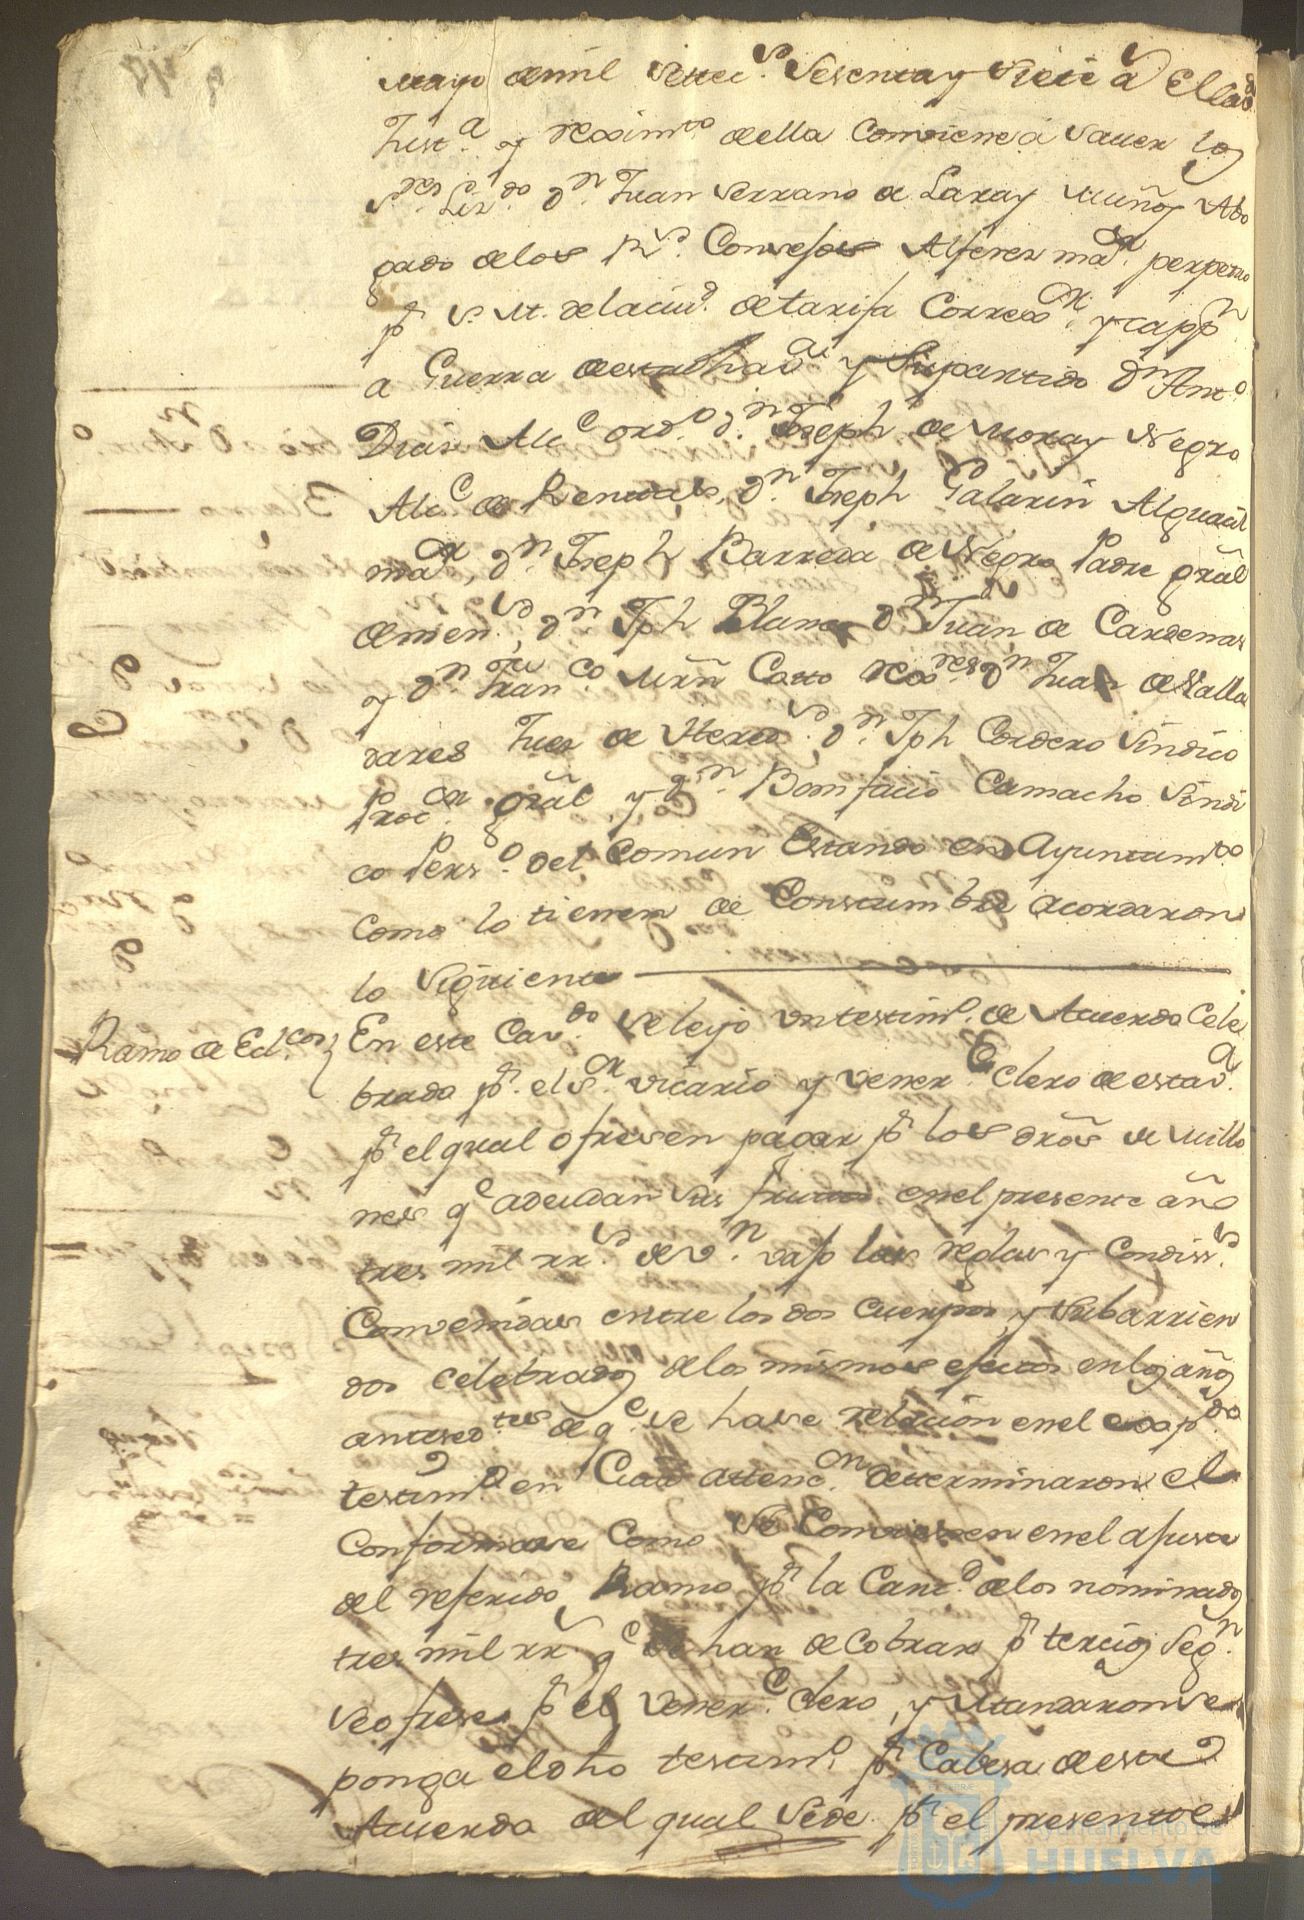 Mayo de mil settec.s Sesenta y Siete a El la d
Just.a y rexim.to de ella Combiene á Saver los
S.res Liz.do D.n Juan Serrano de Lara y Muñoz Abo
gado de los R.s Consejos Alferez ma.or perpetuo
p.r S. M. de la ciu.d de tarifa Correx.or y capp.n
a Guerra de esta Vi.a y Su partido D.n Ant.o
Dias Alc.e ord.o D.n Joseph de Mora y Negro
Alc.e de Rentas, D.n Joseph Galarin Alguacil
ma.or, D.n Joseph Barreda de Negro Padre gral
de men.s, D.n Jph Blanco D.n Juan de Cardenas
y D.n Fran.co Mrñ Casto rex.res D.n Juan de Valla
dares Juez de Hered.s D.n Jph Cordero Sindico
Proc.or gral y D.n Bonifacio Camacho Sindi
co Pers.o del Comun Estando en Ayuntam.to
Como lo tienen de Constumbre acordaron
lo Siguiente
Ramo de Ecl.cos
En este Cav.do se leyó un testim.o de Acuerdo Cele
brado p.r el S.or vicario y vener.e clero de esta V.a
p.r el qual ofresen pagar p.r los dros de Millo
nes q.e adeudan sus frutos en el presente año
tres mil rr.s de v.n vajo las reglas y Condis.s
Convenidas entre los dos Cuerpos y Subarrien
dos celebrados de los mismos efectos en los años
antesed.tes de q.e se hase relacion en el exp.do
testim.o en Cuia attenc.on determinaron el
Conformarse Como se Conforman en el ajuste
del referido Ramo p.r la Cant.d de los nominados
tres mil rr.s q.e se han de Cobrar p.r tercios Seg.n
se ofrese p.r el vener.e Clero, y Mandaron se
ponga el dho testim.o p.r Cabesa de este
Acuerdo del qual Se de p.r el presente
Ayuntamiento de
HUELVA